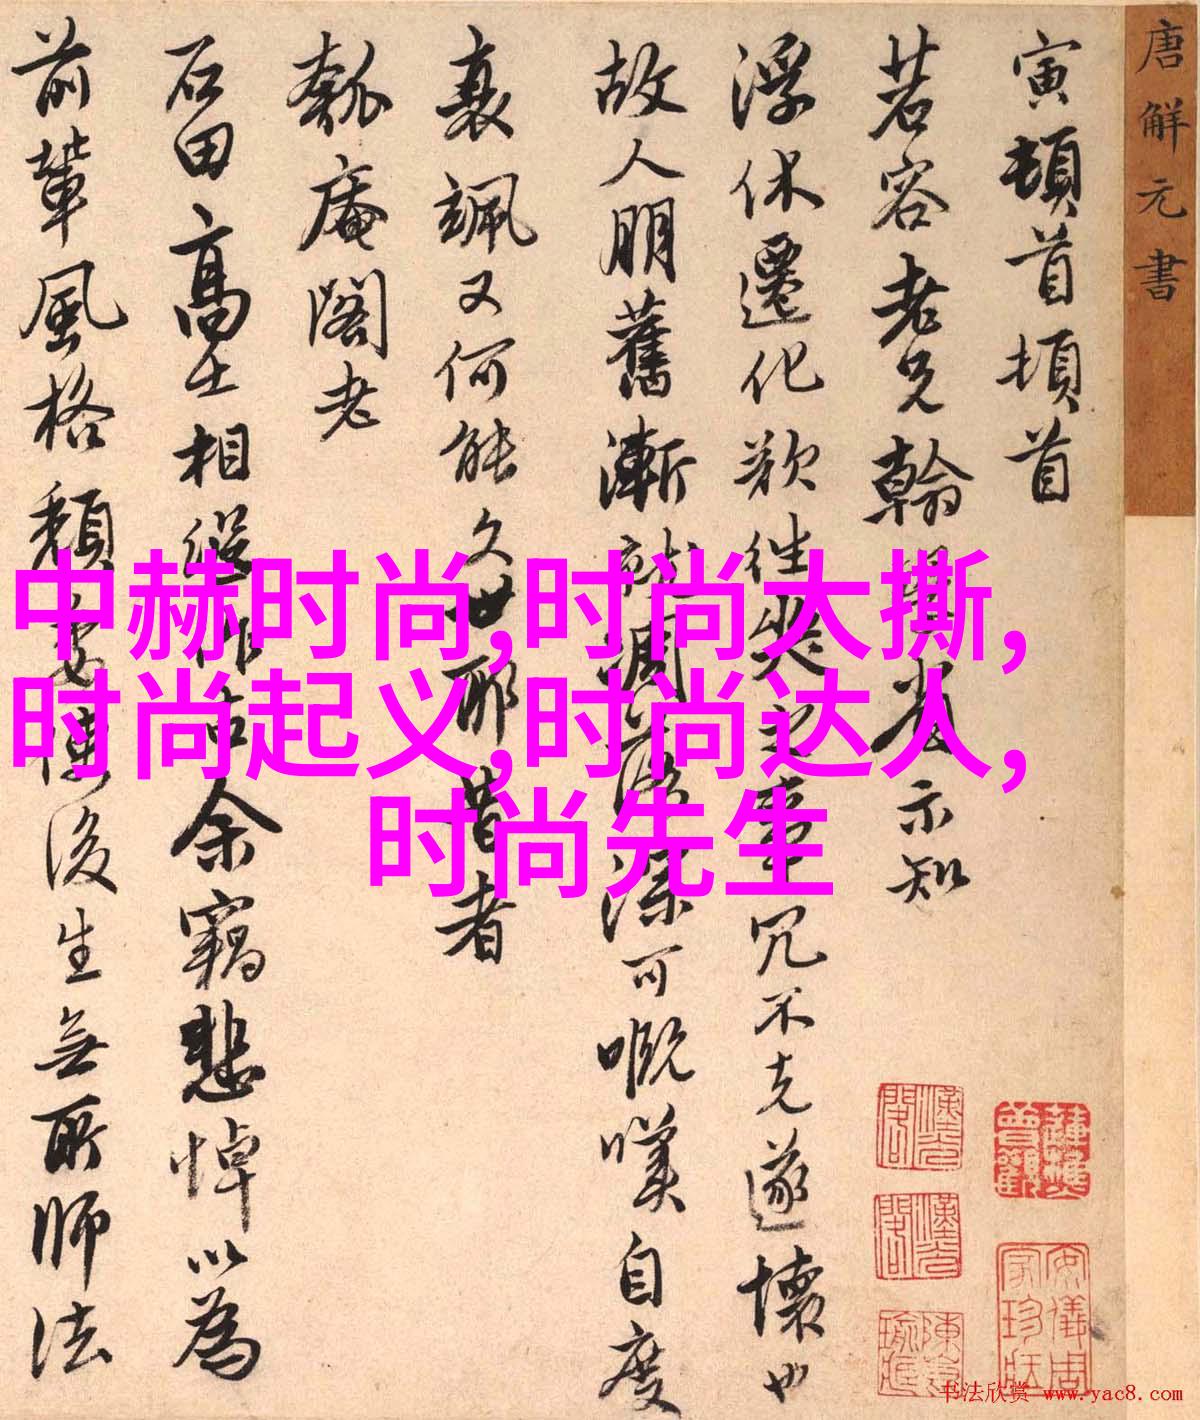 唐解元書
寅頓首頓首
茗容老兄翰 示知
浮休遷化欲往哭之事冗不克遂懷也
故人朋舊漸就凋落深可嘅嘆自度
衰颯又何能久世耶昔者
瓠庵閣老
石田高士相繼作古余竊悲悼以為
前輩風格頹 後生無所師法
中赫时尚,时尚大撕,
时尚起义,时尚达人,
时尚先生
书法欣赏 www.yac8.com